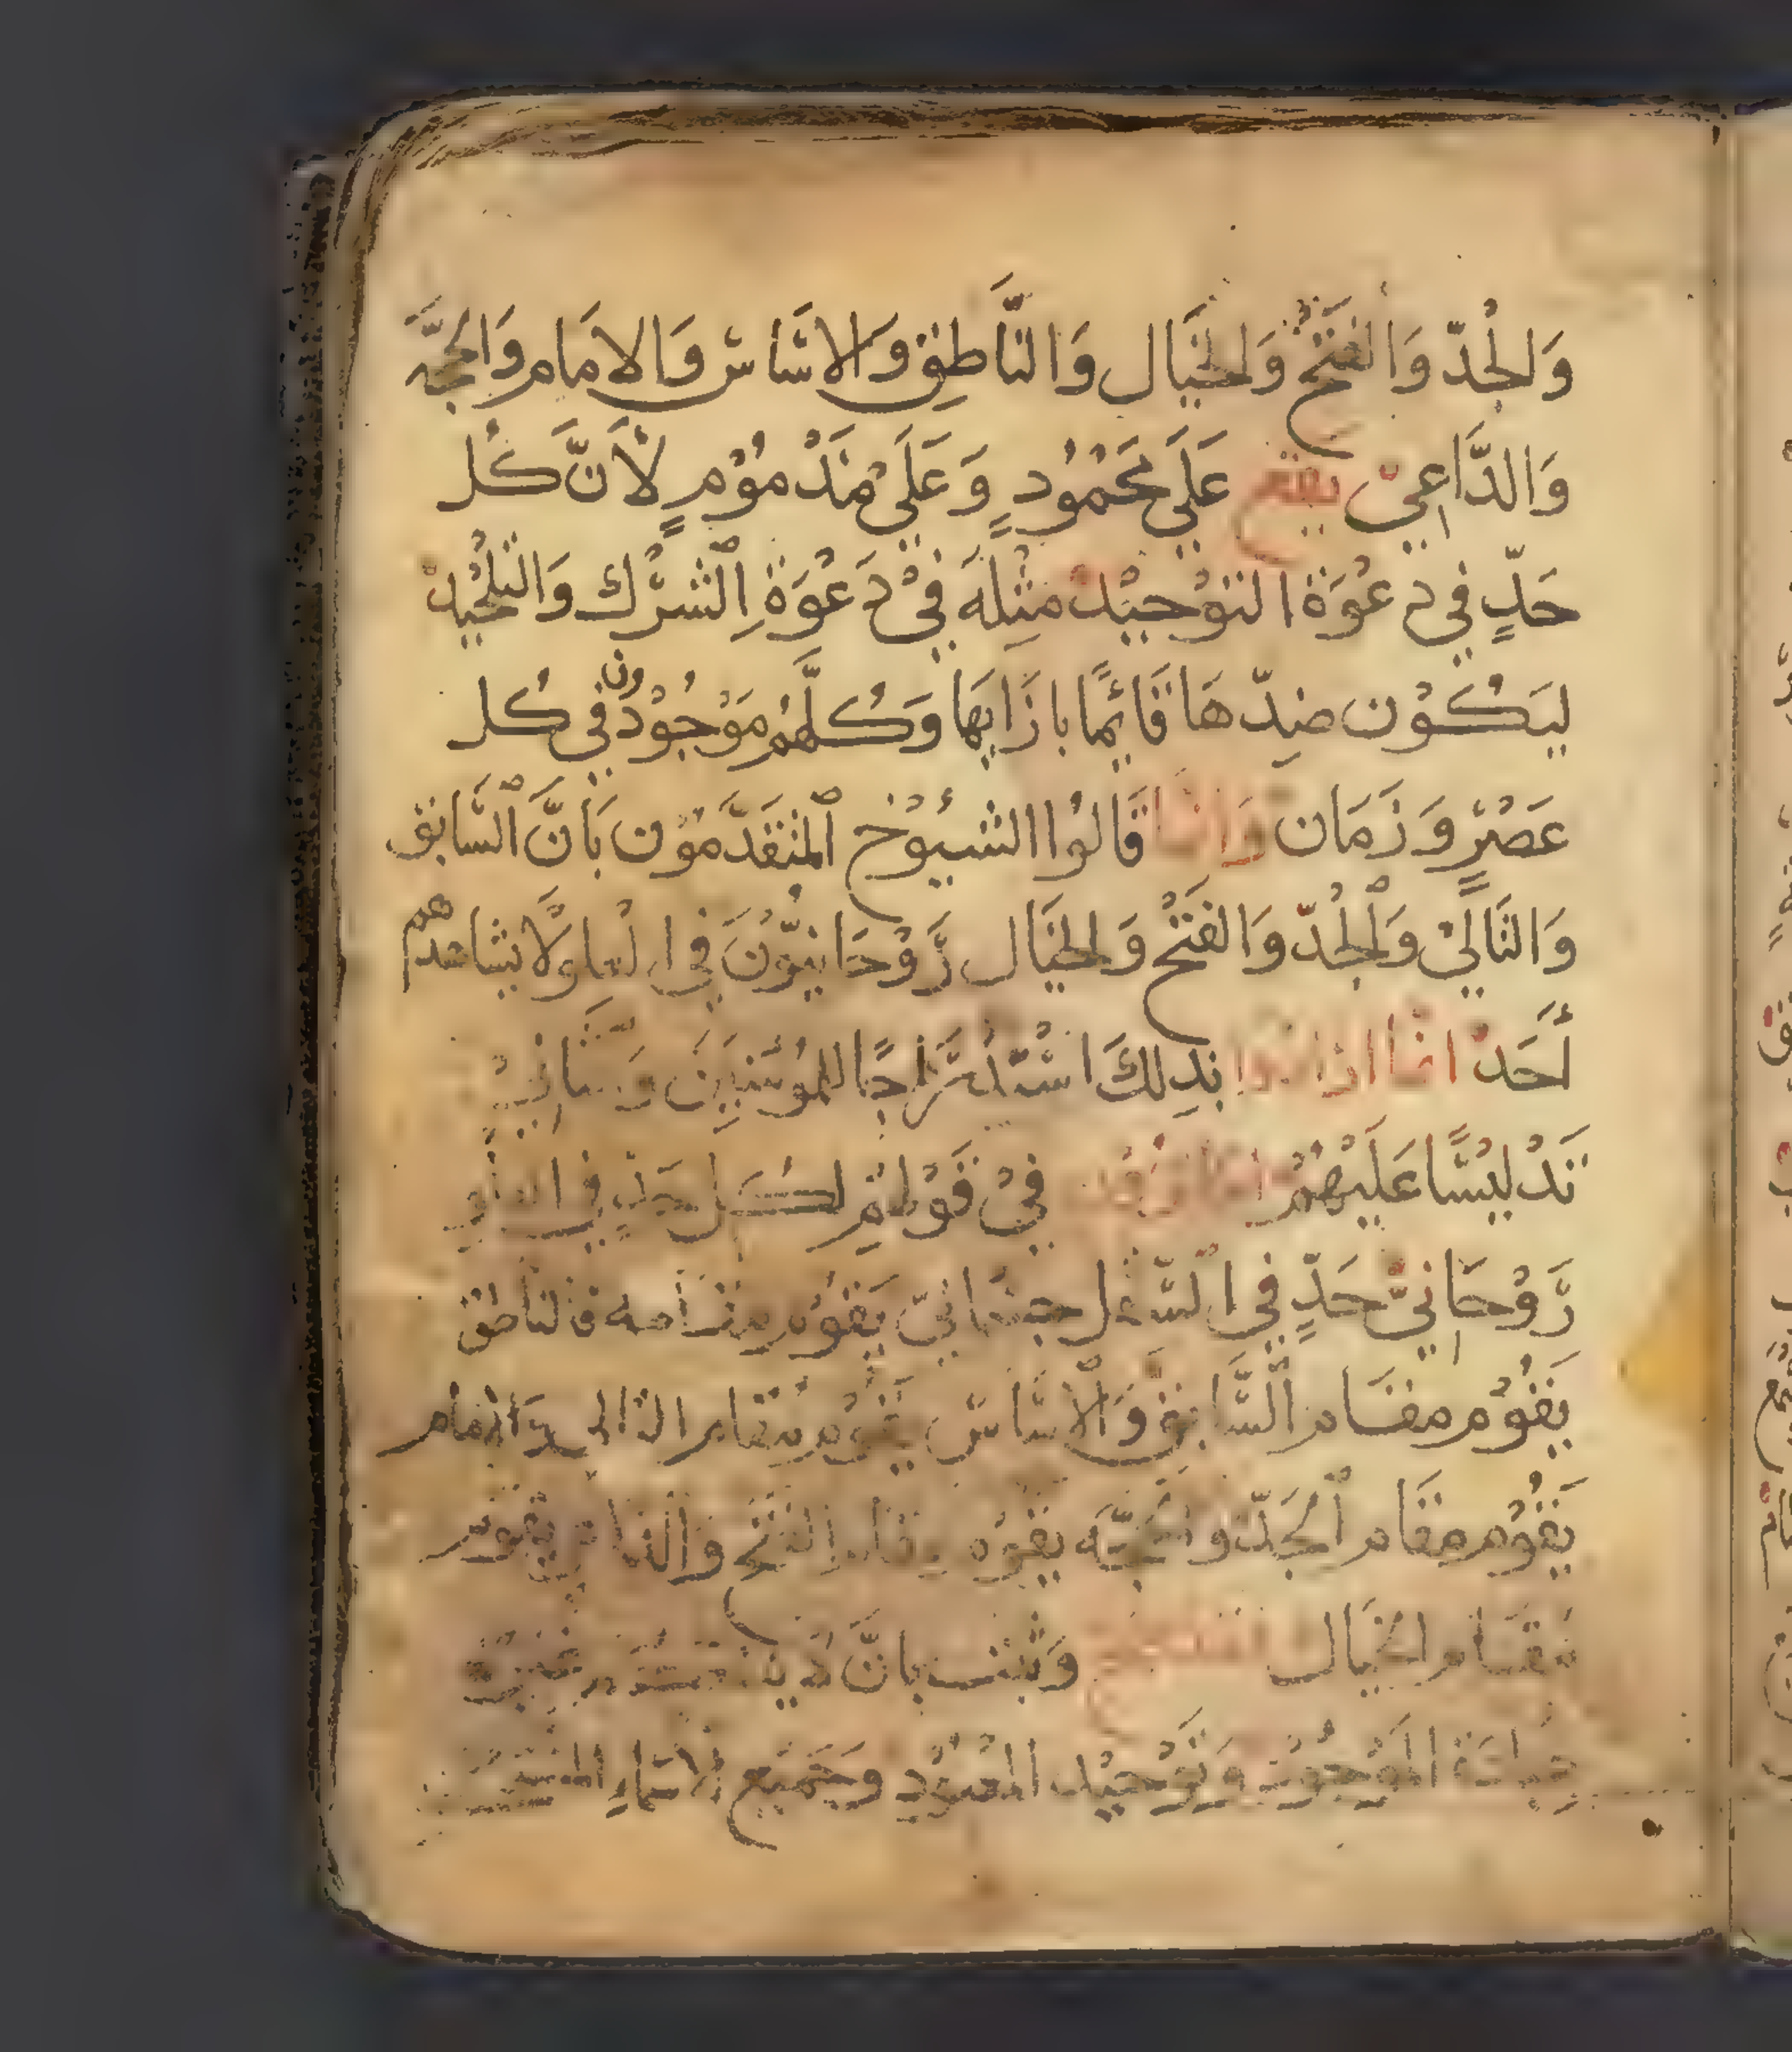 وَالْجُدّ وَالْفَتْحُ وَالْخَيَال وَالنَّاطِق وَالاسَاسْ وَالامَام وَالحُجَّه
وَالدَّاعِيْ يقع عَلَي مَحْمُوْدٍ وَعَلَيْ مَذْمُوْمٍ لِأَنَّ كُل
حَدٍّ فِي دعْوَة التوْحِيْد مِثلهَ فيْ دَعْوَة اِلشرْك وَالتلْحِيد
ليَكُوْن ضِدّ هَا قَائِمًا بازَايهَا وَكُلَّهُم مَوْجُوْدُون فِي كُل
عَصْرٍ وَزَمَان وَانما قَالوُا الشيُوْخ المتقَدّمُوْن بَانَّ السَّابق
وَالتَالِيْ وَالْجُدّ وَالفَتْح وَالخيَال رَّوْحَانِيّوُنَ فِي ولَا يشاهدهم
أَحَدْ انما ارادوا بذِلكَ اسْتدْرَاجًا للمُوُمنيِنَ
تَدْليْسًا عَلَيْهُمْ فيْ قَوْلهُمِ لكُل حَدٍ فِي
رَّوْحَانِيّ حَدٍّ فِي السّفل جسْمَانيّ يَقوُم مقَامه فالناطق
يَقوُم مقام السَّابق وَالاسَاسْ يَقوُم مقام التالي وَالامام
يَقوُم مقام الْجَدّ والحجّه يقوُم مقام الفتْح وَالداعي يقوم
مَقام الخيَال وَثبت بانَّ
عِبَادَة الموْجُوْد وَتوْحِيْد المعبُوْد وَجَمِيْع اسْمَاء